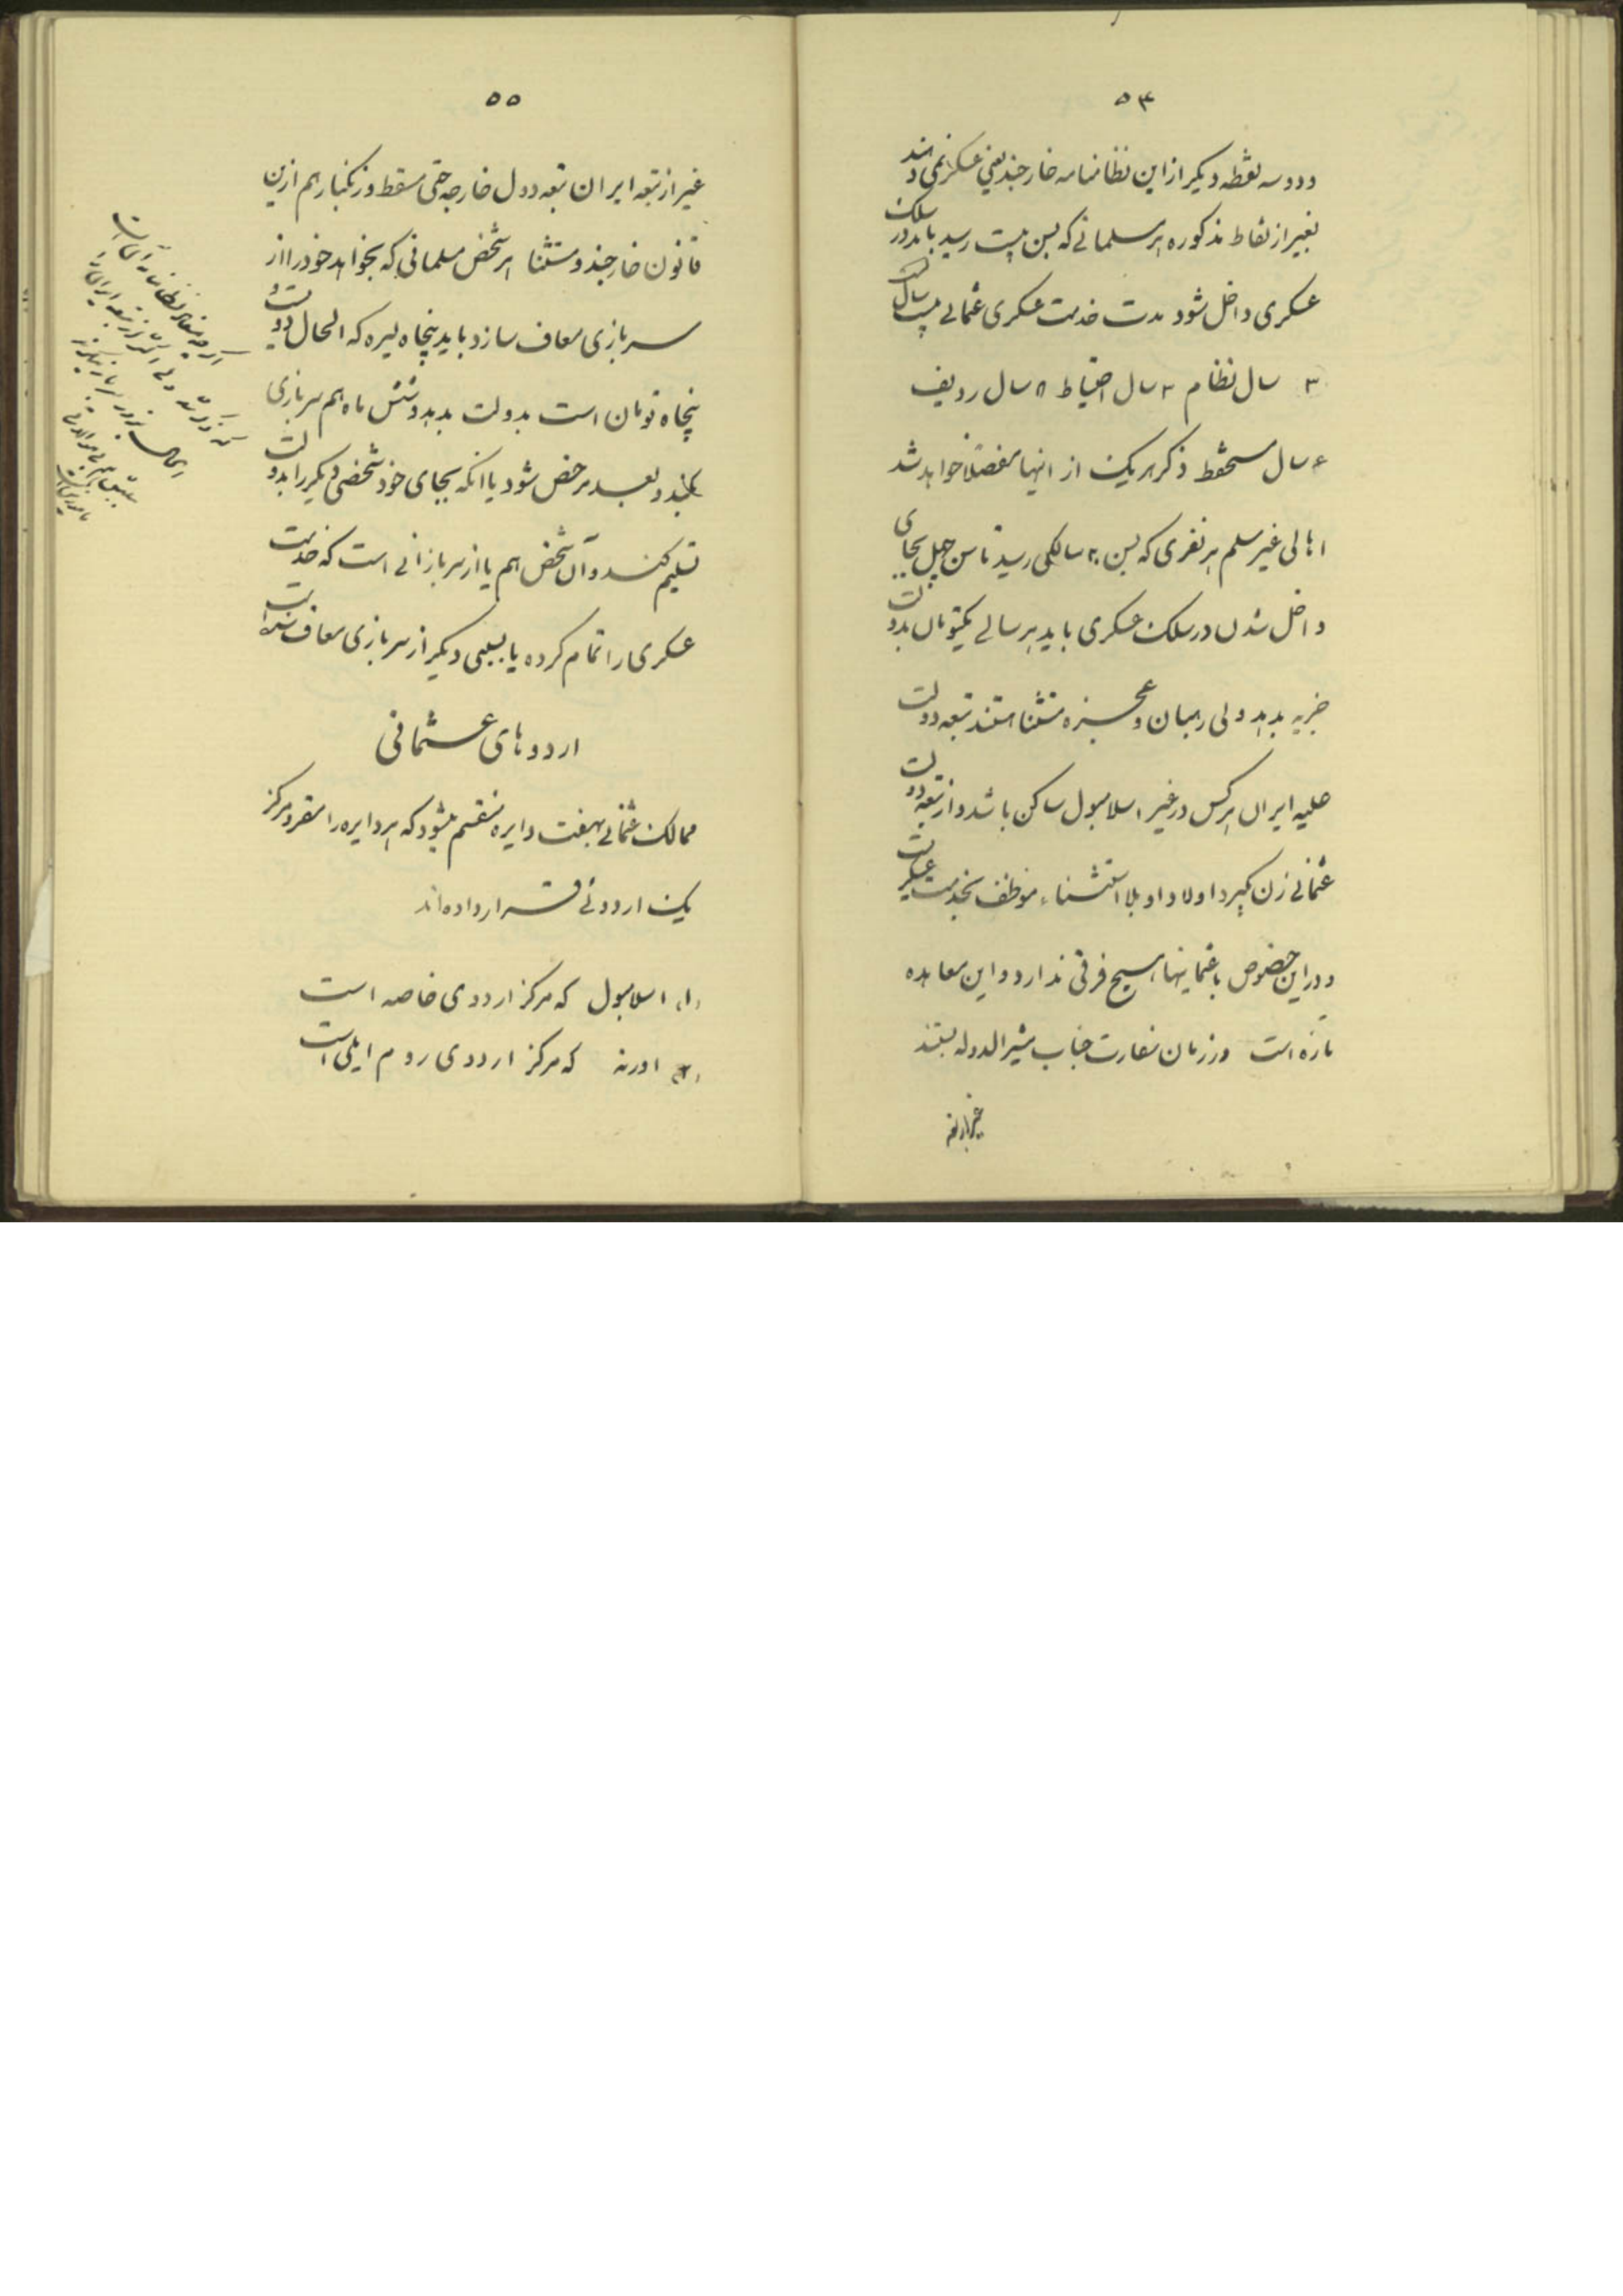 ۵۴
و دو سه نقطه دیگر از این نظامنامه خارجند یعنی عسکر نمی‌دهند
بغیر از نقاط مذکوره هر مسلمانی که بسن بیست رسید باید در سلک
عسکری داخل شود مدت خدمت عسکری عثمانی بیست سال است
۳ سال نظام ۳ سال احتیاط ۸ سال ردیف
۶ سال مستحفظ ذکر هریک از اینها مفصلاً خواهد شد
اهالی غیر مسلم هر نفری که بسن ۲۰ سالگی رسید تا سن چهل بجای
داخل شدن در سلک عسکری باید هر سالی یکتومان بدولت
جزیه بدهد ولی رهبان و عجزه مستثنا هستند تبعه دولت
علیه ایران هرکس در غیر اسلامبول ساکن باشد و از تبعه دولت
عثمانی زن بگیرد اولاد او بلا استثناء موظف بخدمت عسکریت
و در این خصوص با عثمانیها هیچ فرقی ندارد و این معاهده
تازه است در زمان سفارت جناب مشیرالدوله بستند
غیر از تبعه
۵۵
غیر از تبعه ایران تبعه دول خارجه حتی مسقط و زنگبار هم ازین
قانون خارجند و مستثنا هر شخص مسلمانی که بخواهد خود را از
سربازی معاف سازد باید پنجاه لیره که الحال دویست و
پنجاه تومان است بدولت بدهد و شش ماه هم سربازی
بکند و بعد مرخص شود یا انکه بجای خود شخصی دیگر را بدولت
تسلیم کند و آن شخص هم یا از سربازانی است که خدمت
عسکری را تمام کرده یا بسببی دیگر از سربازی معاف شده است
اردوهای عثمانی
ممالک عثمانی بهفت دایره منقسم میشود که هر دایره را مقر و مرکز
یک اردوئی قرار داده‌اند
(۱) اسلامبول که مرکز اردوی خاصه است
(۲) ادرنه که مرکز اردوی روم ایلی است
اگر چه نظامنامه